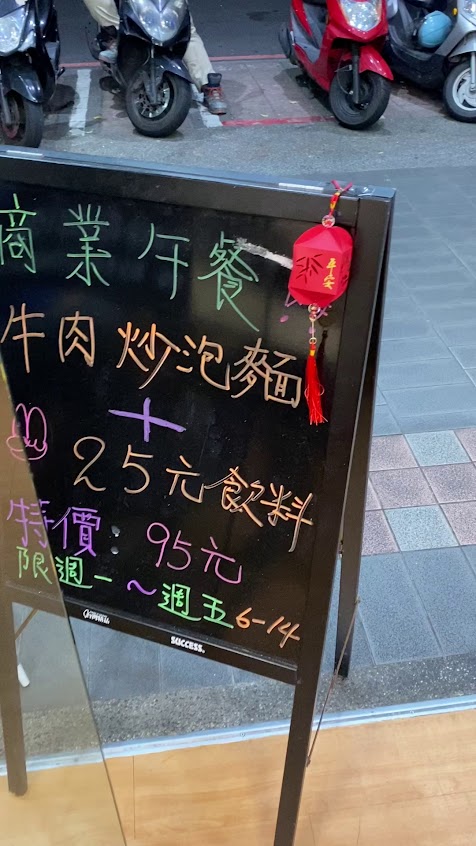 商業午餐
平安
牛肉炒泡麵
+
25元飲料
特價 95元
限週一~週五 6-14
SUCCESS.